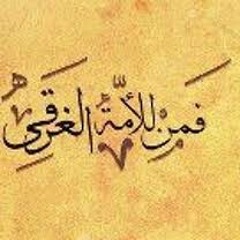 فَمَنْ لِلأمَّةِ الغَرْقَى